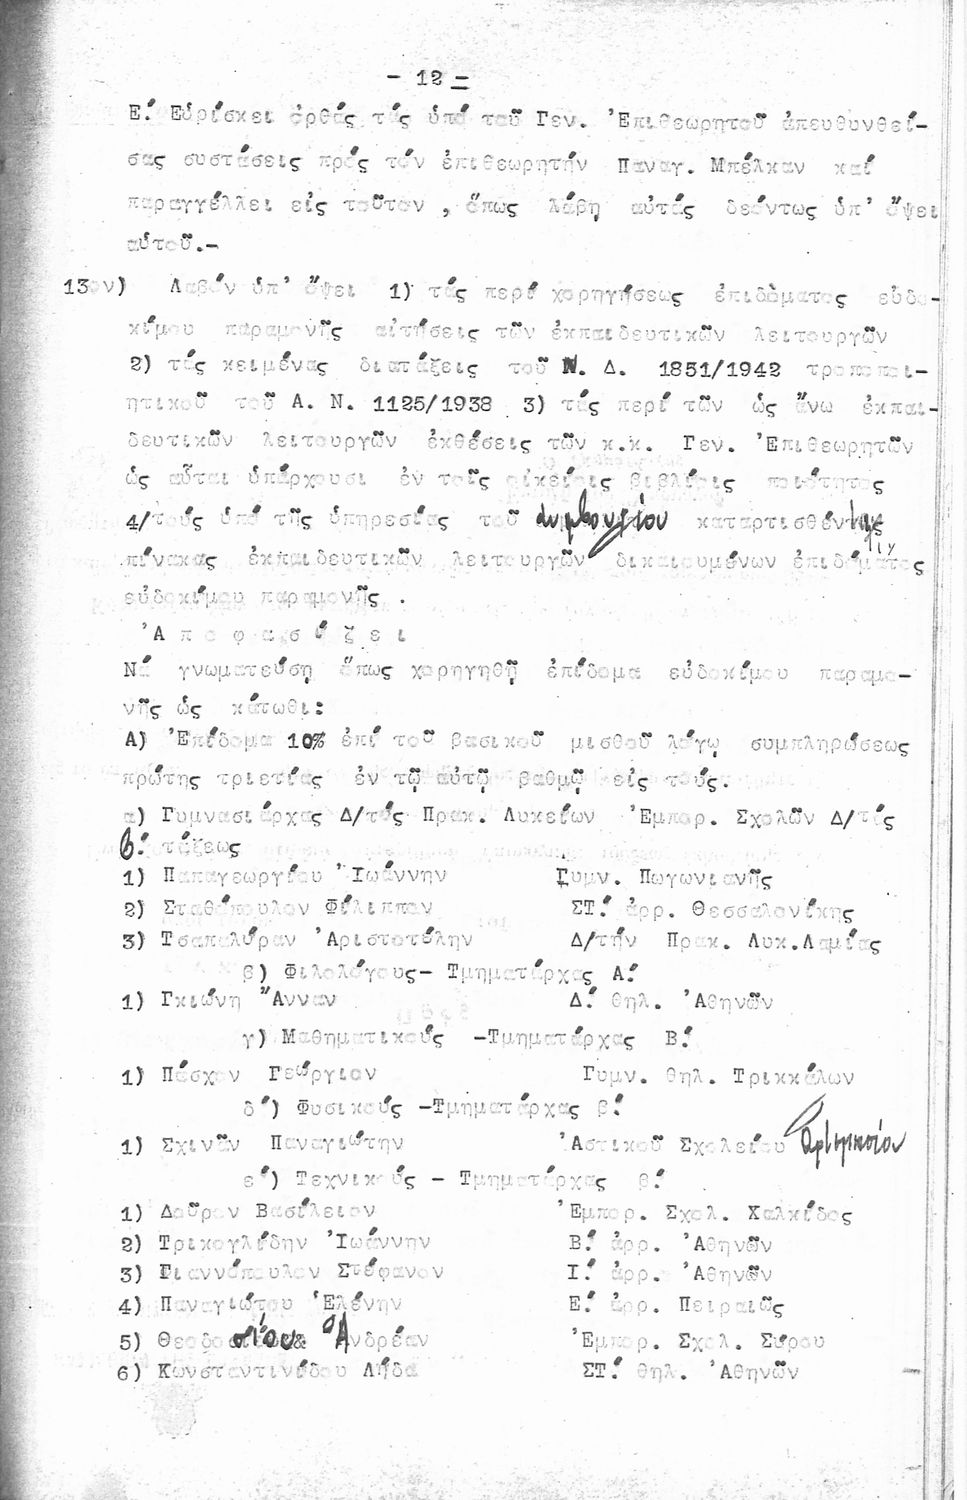 - 12 -
Ε! Εὑρίσκει ὀρθάς τάς ὑπό τοῦ Γεν. Ἐπιθεωρητοῦ ἀπευθυνθεί-
σας συστάσεις πρός τόν ἐπιθεωρητήν Παναγ. Μπέλκαν καί
παραγγέλλει εἰς τοῦτον , ὅπως λάβη αὐτάς δεόντως ὑπ' ὄψει
αὐτοῦ.-
13ον) Λαβόν ὑπ' ὄψει 1) τάς περί χορηγήσεως ἐπιδόματος εὐδο-
κίμου παραμονῆς αἰτήσεις τῶν ἐκπαιδευτικῶν λειτουργῶν
2) τάς κειμένας διατάξεις τοῦ Ν. Δ. 1851/1942 τροποποι-
ητικοῦ τοῦ Α. Ν. 1125/1938 3) τάς περί τῶν ὡς ἄνω ἐκπαι-
δευτικῶν λειτουργῶν ἐκθέσεις τῶν κ.κ. Γεν. Ἐπιθεωρητῶν
ὡς αὗται ὑπάρχουσι ἐν τοῖς οἰκείοις βιβλίοις ποιότητος
4/τούς ὑπό τῆς ὑπηρεσίας τοῦ συμβουλίου καταρτισθέντας
πίνακας ἐκπαιδευτικῶν λειτουργῶν δικαιουμένων ἐπιδόματος
εὐδοκίμου παραμονῆς .
Ἀ π ο φ α σ ί ζ ε ι
Νά γνωματεύση ὅπως χορηγηθῇ ἐπίδομα εὐδοκίμου παραμο-
νῆς ὡς κάτωθι:
Α) Ἐπίδομα 10% ἐπί τοῦ βασικοῦ μισθοῦ λόγῳ συμπληρώσεως
πρώτης τριετίας ἐν τῷ αὐτῷ βαθμῷ εἰς τούς.
α) Γυμνασιάρχας Δ/τάς Πρακ. Λυκείων Ἐμπορ. Σχολῶν Δ/τάς
β! τάξεως
1) Παπαγεωργίου Ἰωάννην Γυμν. Πωγωνιανῆς
2) Σταθόπουλον Φίλιππον ΣΤ! ἀρρ. Θεσσαλονίκης
3) Τσαπαλύραν Ἀριστοτέλην Δ/τήν Πρακ. Λυκ.Λαμίας
β) Φιλολόγους- Τμηματάρχας Α!
1) Γκιώνη Ἄνναν Δ! θηλ. Ἀθηνῶν
γ) Μαθηματικούς -Τμηματάρχας Β!
1) Πάσχον Γεώργιον Γυμν. θηλ. Τρικκάλων
δ') Φυσικούς -Τμηματάρχας β!
1) Σχινᾶν Παναγιώτην Ἀστικοῦ Σχολείου
ε') Τεχνικούς - Τμηματάρχας β!
1) Δοῦρον Βασίλειον Ἐμπορ. Σχολ. Χαλκίδος
2) Τρικογλίδην Ἰωάννην Β! ἀρρ. Ἀθηνῶν
3) Γιαννόπουλον Στέφανον Ι! ἀρρ. Ἀθηνῶν
4) Παναγιώτου Ἑλένην Ε! ἀρρ. Πειραιῶς
5) Θεοδοσίου Ἀνδρέαν Ἐμπορ. Σχολ. Σύρου
6) Κωνσταντινίδου Λήδα ΣΤ! θηλ. Ἀθηνῶν